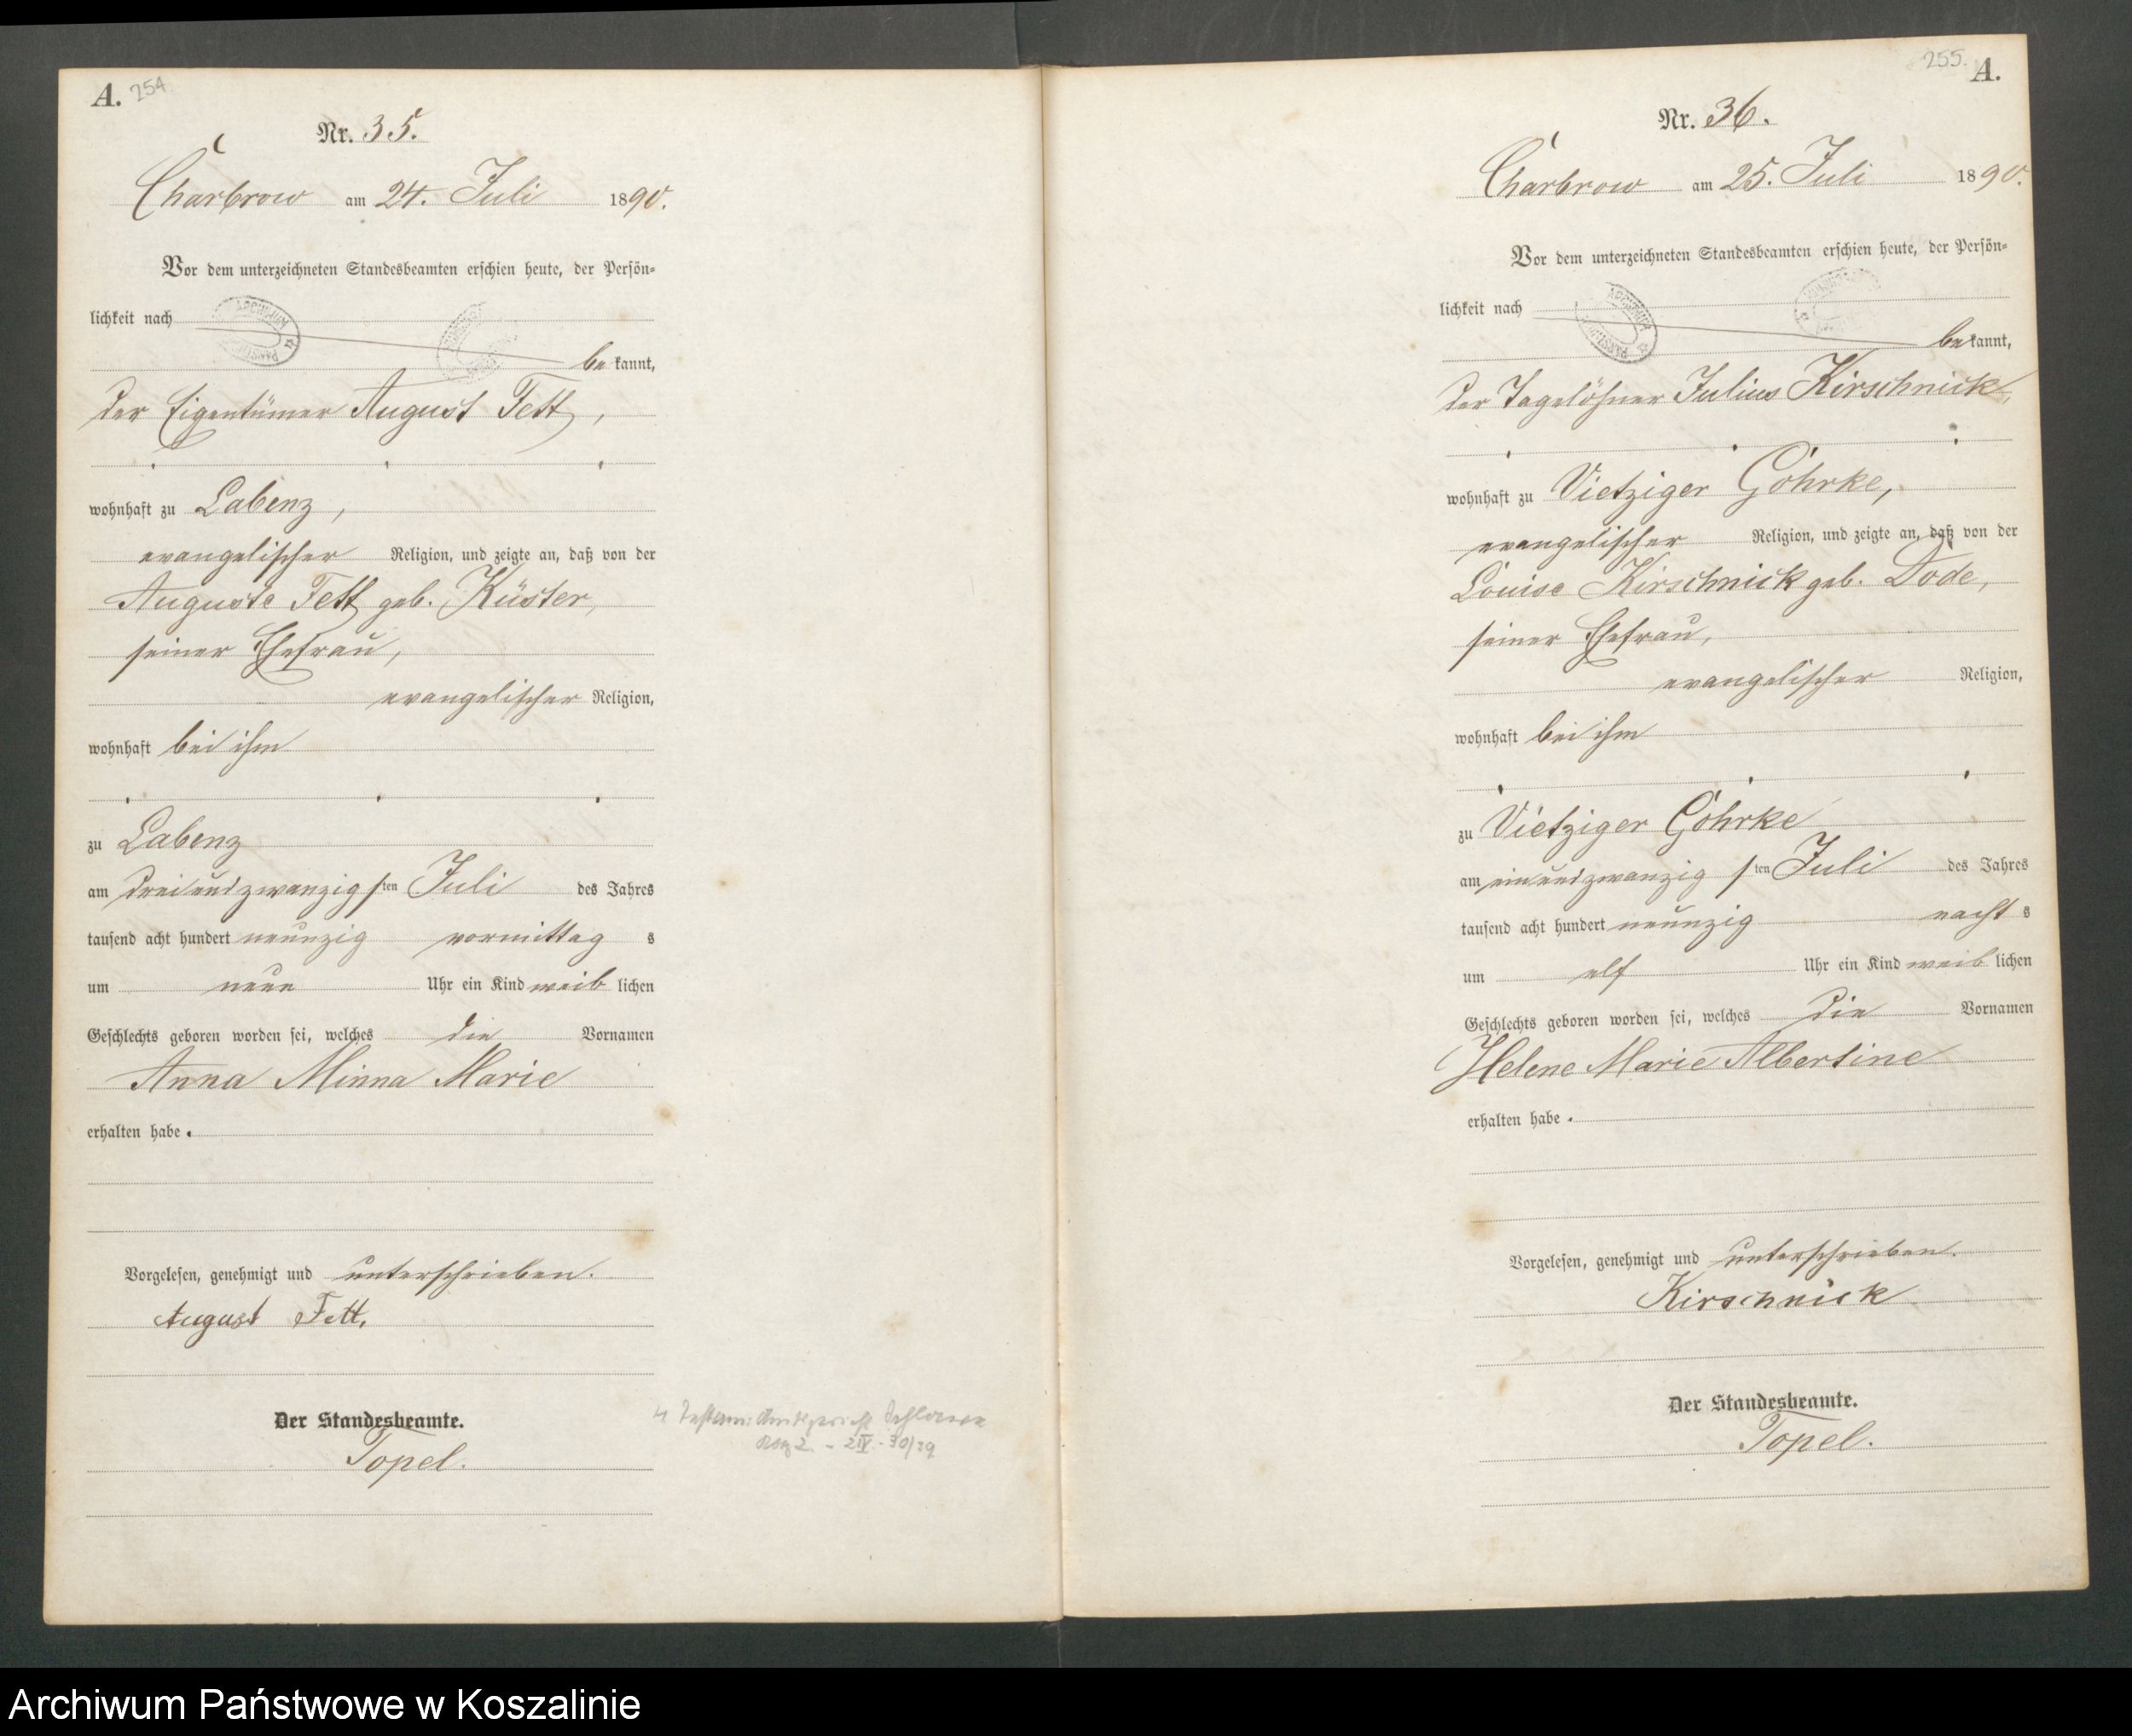 A. 254
Nr. 35.
Charbrow am 24. Juli 1890.
Vor dem unterzeichneten Standesbeamten erschien heute, der Persön-
lichkeit nach
bekannt,
der Eigentümer August Fett,
wohnhaft zu Labenz,
evangelischer Religion, und zeigte an, daß von der
Auguste Fett geb. Küster,
seiner Ehefrau,
evangelischer Religion,
wohnhaft bei ihm
zu Labenz
am dreiundzwanzigsten Juli des Jahres
tausend acht hundert neunzig vormittags
um neun Uhr ein Kind weiblichen
Geschlechts geboren worden sei, welches die Vornamen
Anna Minna Marie
erhalten habe.
Vorgelesen, genehmigt und unterschrieben.
August Fett.
Der Standesbeamte.
Topel.
255. A.
Nr. 36.
Charbrow am 25. Juli 1890.
Vor dem unterzeichneten Standesbeamten erschien heute, der Persön-
lichkeit nach
bekannt,
der Tagelöhner Julius Kirschnick,
wohnhaft zu Vietziger Göhrke,
evangelischer Religion, und zeigte an, daß von der
Louise Kirschnick geb. Dode,
seiner Ehefrau,
evangelischer Religion,
wohnhaft bei ihm
zu Vietziger Göhrke
am einundzwanzigsten Juli des Jahres
tausend acht hundert neunzig nachts
um elf Uhr ein Kind weiblichen
Geschlechts geboren worden sei, welches die Vornamen
Helene Marie Albertine
erhalten habe.
Vorgelesen, genehmigt und unterschrieben.
Kirschnick
Der Standesbeamte.
Topel.
Archiwum Państwowe w Koszalinie